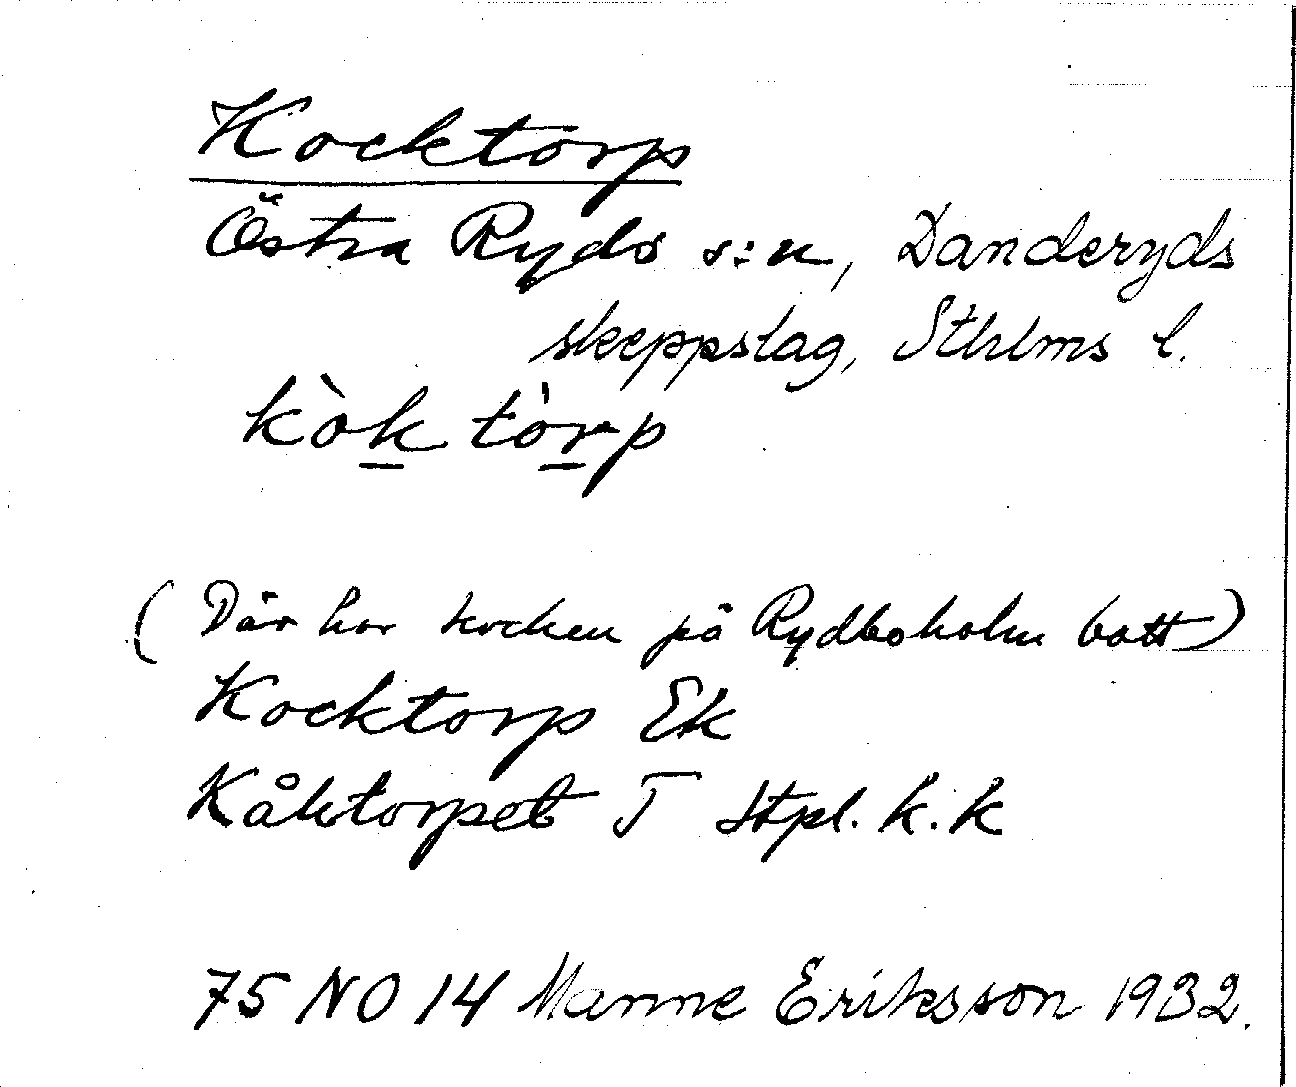 Kocktorp
Östra Ryds s:n, Danderyds
skeppslag, Sthlms l.
kòk tòrp
(Där har kocken på Rydboholm bott)
Kocktorp Ek
Kåktorpet T Stpl. k.k
75 NO 14 Manne Eriksson 1932.